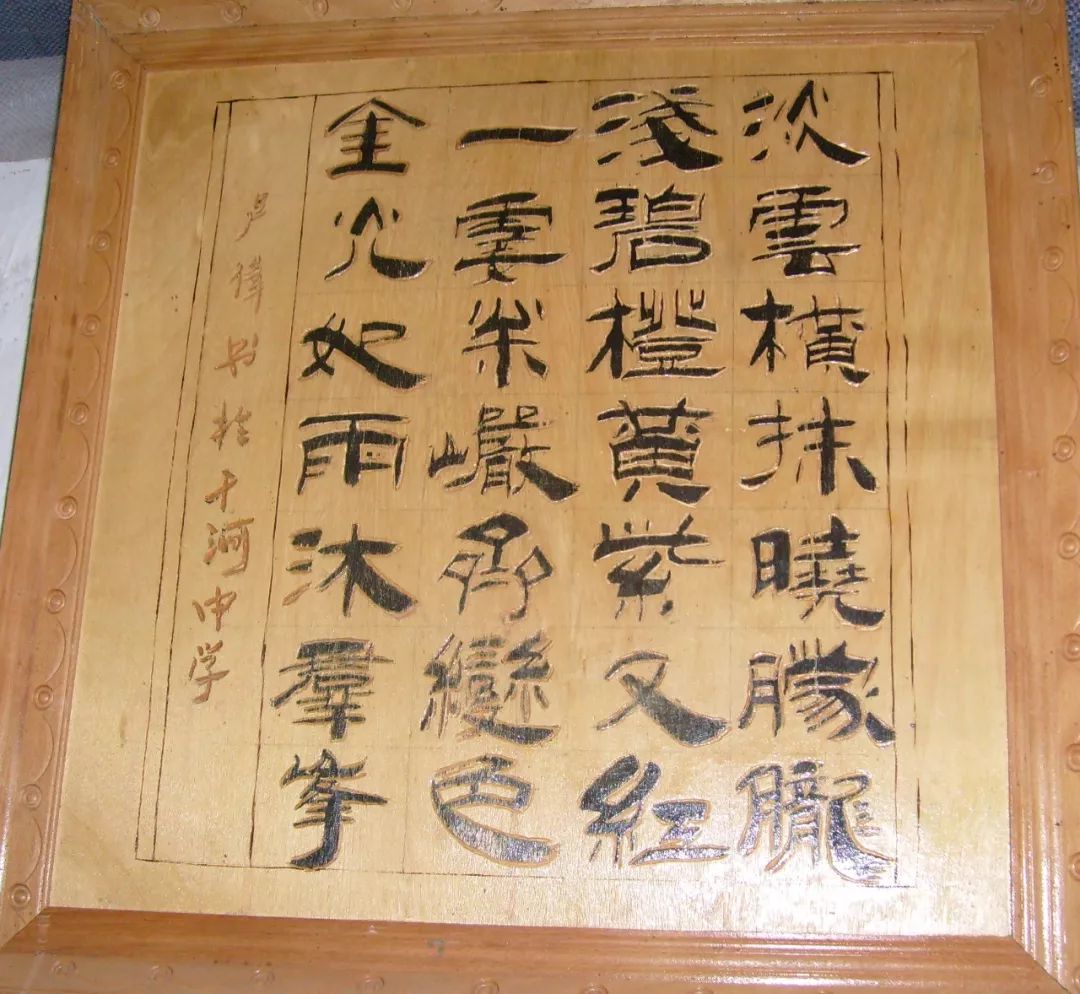 淡雲橫抹曉朦朧
淺碧橙黃紫又紅
一霎巖齊變色
金光如雨沐羣峯
卢书於十河中学